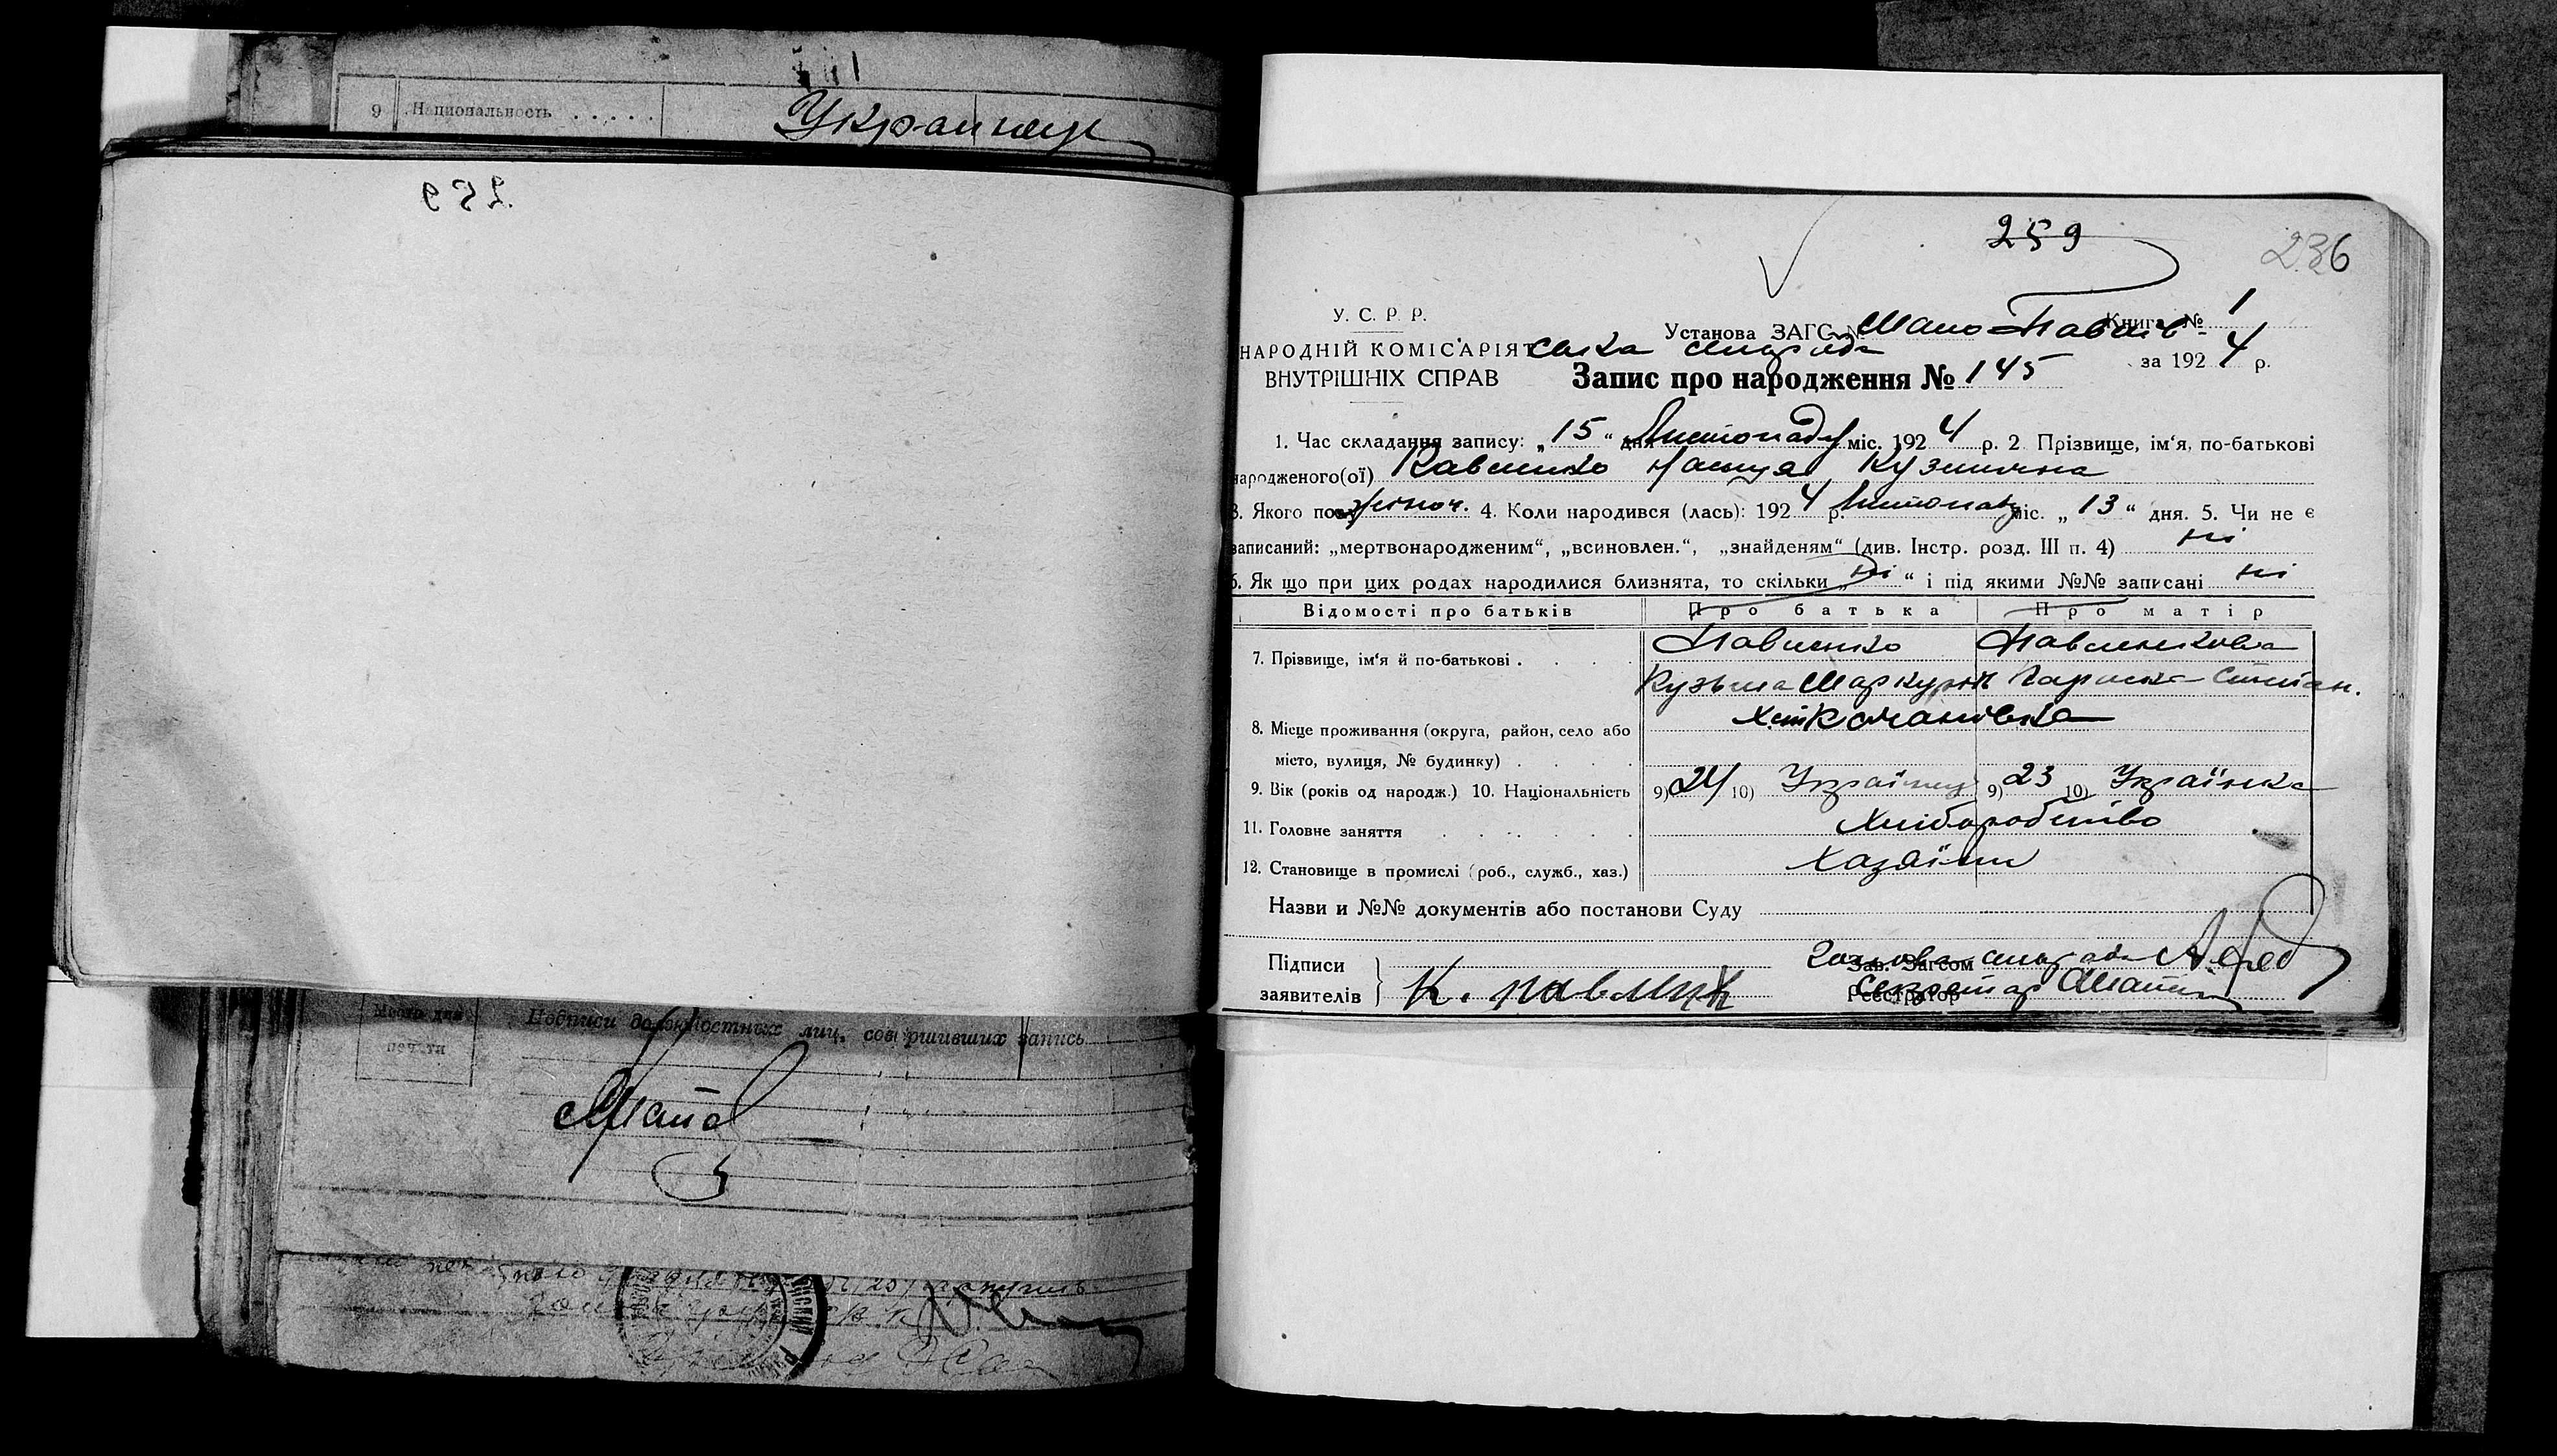 9 Национальность . . . . . Украинец
259
259
236
У. С. Р. Р.
Установа ЗАГС № Мало-Павлів- Книга № 1
НАРОДНІЙ КОМІСАРІЯТ
за 1924 р.
ВНУТРІШНІХ СПРАВ
Запис про народження № 145
1. Час складання запису: „15“ дня Листопаду міс. 1924 р. 2 Прізвище, ім‘я, по-батькові
народженого(ої) Павленко Настя Кузмична
3. Якого пола жіноч. 4. Коли народився (лась): 1924 р. Листопаду міс. „13“ дня. 5. Чи не є
записаний: „мертвонародженим“, „всиновлен.“, „знайденям“ (див. Інстр. розд. III п. 4) ні
6. Як що при цих родах народилися близнята, то скільки „ні“ і під якими №№ записані ні
Відомості про батьків Про батька Про матір
7. Прізвище, ім‘я й по-батькові . . . . Павленко Павленкова
Кузьма Маркурів Степан.
8. Місце проживання (округа, район, село або
місто, вулиця, № будинку) . . . .
9. Вік (років од народж.) 10. Національність 9) 24 10) Українец 9) 23 10) Українка
11. Головне заняття . . . . . Хліборобство
12. Становище в промислі (роб., служб., хаз.) Хазяїни
Назви и №№ документів або постанови Суду
Підписи
заявителів
Зав. Загсом
К. павлик
Реєстратор Секретар
Место для печати
Подписи должностных лиц, совершивших запись